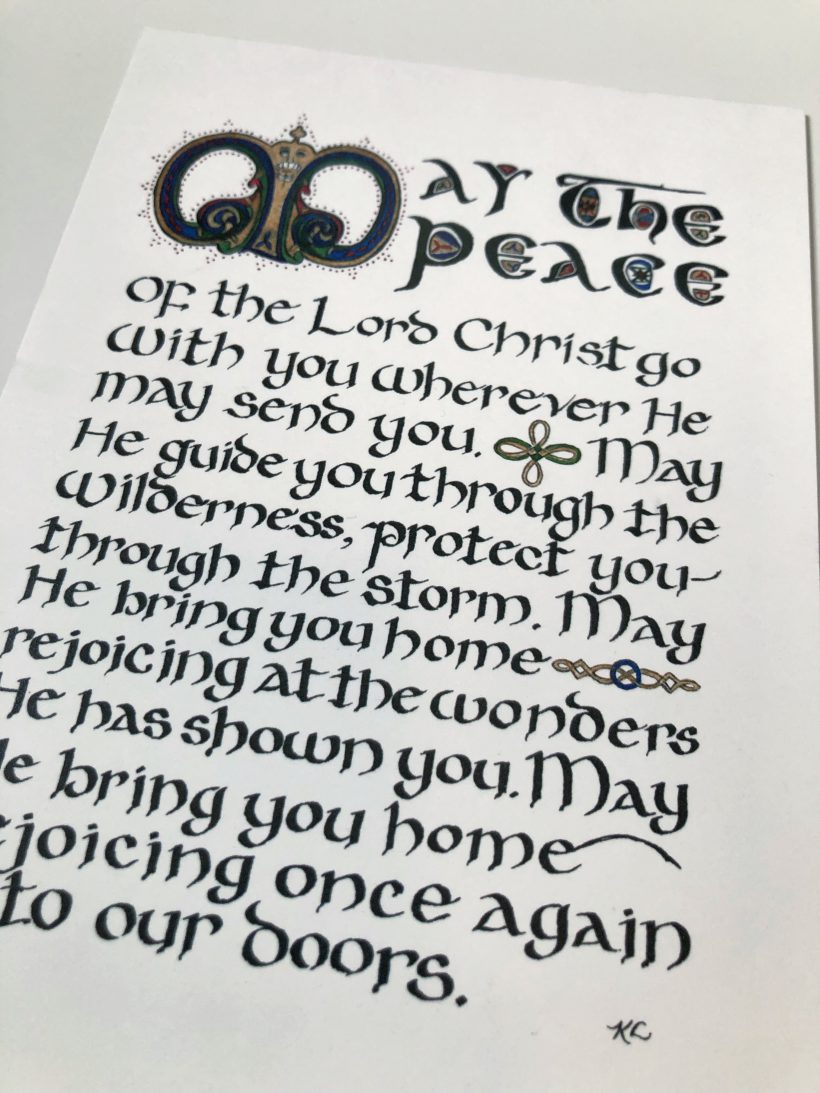 May The
Peace
of the Lord Christ go
with you wherever He
may send you. May
He guide you through the
wilderness, protect you
through the storm. May
He bring you home
rejoicing at the wonders
He has shown you. May
He bring you home
rejoicing once again
to our doors.
KL